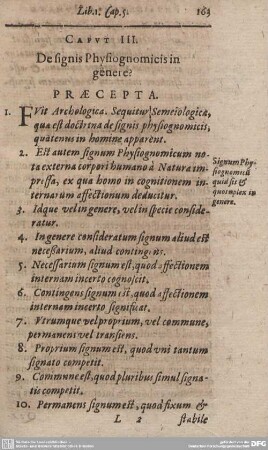 Lib. 1. Cap. 5. 163
CAPVT III.
De signis Physiognomicis in
genere?
PRÆCEPTA.
1. FVit Archologica. Sequitur Semeiologica,
qua est doctrina de signis physiognomicis,
quatenus in homine apparent.
2. Est autem signum Physiognomicum no
ta externa corpori humano à Natura im-
pressa, ex qua homo in cognitionem in-
ternarum affectionum deducitur.
Signum Phy-
siognomicū
quid sit &
quotuplex in
genere.
3. Idque vel in genere, vel in specie conside-
ratur.
4. In genere consideratum signum aliud est
necessarium, aliud contingens.
5. Necessarium signum est, quod affectionem
internam incerto cognoscit.
6. Contingens signum est, quod affectionem
internam incerto significat.
7. Vtrumque vel proprium, vel commune,
permanens vel transiens.
8. Proprium signum est, quod vni tantum
signato competit.
9. Commune est, quod pluribus simul signa-
tis competit.
10. Permanens signum est, quod fixum &
L 2 stabile
DFG